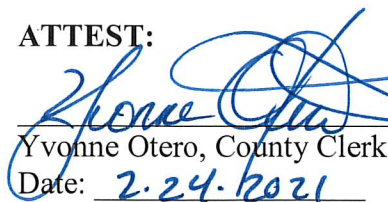 ATTEST:
Yvonne Otero
Yvonne Otero, County Clerk
Date: 2.24.2021